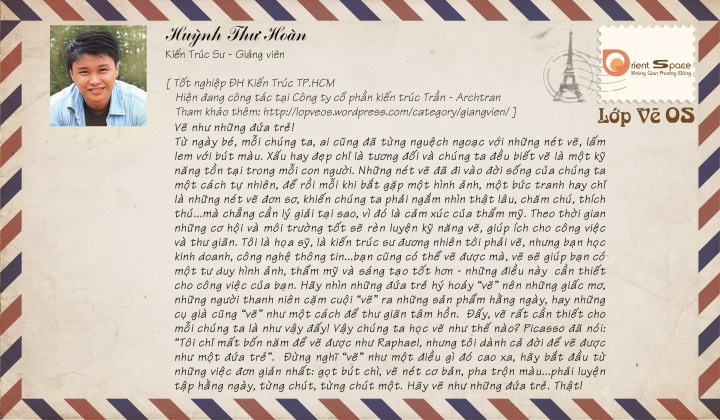 Huỳnh Thư Hoàn
Kiến Trúc Sư - Giảng viên
[ Tốt nghiệp ĐH Kiến Trúc TP.HCM
Hiện đang công tác tại Công ty cổ phần kiến trúc Trần - Archtran
Tham khảo thêm: http://lopveos.wordpress.com/category/giangvien/ ]
Orient Space
Không Gian Phương Đông
Lớp Vẽ OS
Vẽ như những đứa trẻ!
Từ ngày bé, mỗi chúng ta, ai cũng đã từng nguệch ngoạc với những nét vẽ, lấm
lem với bút màu. Xấu hay đẹp chỉ là tương đối và chúng ta đều biết vẽ là một kỹ
năng tồn tại trong mỗi con người. Những nét vẽ đã đi vào đời sống của chúng ta
một cách tự nhiên, để rồi mỗi khi bắt gặp một hình ảnh, một bức tranh hay chỉ
là những nét vẽ đơn sơ, khiến chúng ta phải ngắm nhìn thật lâu, chăm chú, thích
thú...mà chẳng cần lý giải tại sao, vì đó là cảm xúc của thẩm mỹ. Theo thời gian
những cơ hội và môi trường tốt sẽ rèn luyện kỹ năng vẽ, giúp ích cho công việc
và thư giãn. Tôi là họa sỹ, là kiến trúc sư đương nhiên tôi phải vẽ, nhưng bạn học
kinh doanh, công nghệ thông tin...bạn cũng có thể vẽ được mà, vẽ sẽ giúp bạn có
một tư duy hình ảnh, thẩm mỹ và sáng tạo tốt hơn - những điều này cần thiết
cho công việc của bạn. Hãy nhìn những đứa trẻ hý hoáy “vẽ” nên những giấc mơ,
những người thanh niên cặm cuội “vẽ” ra những sản phẩm hằng ngày, hay những
cụ già cũng “vẽ” như một cách để thư giãn tâm hồn. Đấy, vẽ rất cần thiết cho
mỗi chúng ta là như vậy đấy! Vậy chúng ta học vẽ như thế nào? Picasso đã nói:
“Tôi chỉ mất bốn năm để vẽ được như Raphael, nhưng tôi dành cả đời để vẽ được
như một đứa trẻ”. Đừng nghĩ “vẽ” như một điều gì đó cao xa, hãy bắt đầu từ
những việc đơn giản nhất: gọt bút chì, vẽ nét cơ bản, pha trộn màu...phải luyện
tập hằng ngày, từng chút, từng chút một. Hãy vẽ như những đứa trẻ. Thật!